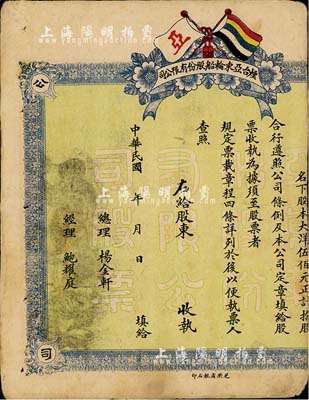 上海陽明拍賣
亞
司公限有份股船輪東亞台煙
公
名下股本大洋伍佰元正計拾股
合行遵照公司條例及本公司定章填給股
票收執為據須至股票者
規定票載章程四條詳列於後以便執票人
查照
右給股東 收執
中華民國 年 月 日 填給
總理 楊金軒
經理 鮑耀庭
司
上海陽明拍賣